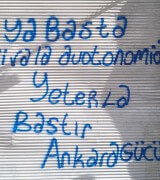 ya Basta
viva la auotonomia
Yeterla
Bastır
Ankaragücü